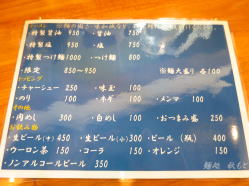 ラーメン ※麺の固さ・味加減など
・特製醤油 950 ・醤油 750
・特製塩 950 ・塩 750
・特製つけ麺1000 ・つけ麺 800
・限定 850〜950 ※麺大盛り 各100
トッピング
・チャーシュー 250 ・味玉 100
・のり 100 ・ネギ 100 ・メンマ 100
その他
・肉めし 300 ・白めし 100 ・おつまみ盛 250
お飲み物
・生ビール(中) 450 ・生ビール(小) 300 ・ビール(瓶) 400
・ウーロン茶 150 ・コーラ 150 ・オレンジ 150
・ノンアルコールビール 350
麺処